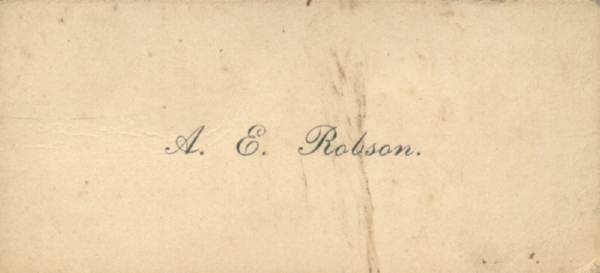 A. E. Robson.